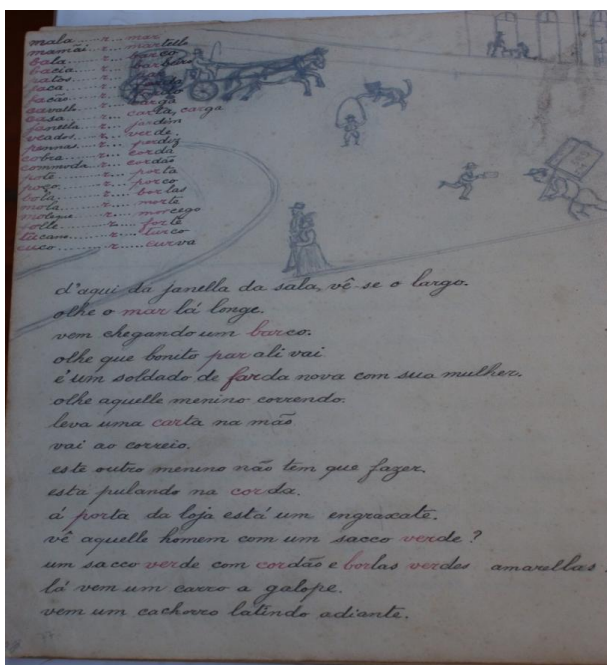 mala.....r... mar
mamãi.....r... martello
bala.....r... barco
bacia.....r... barbeiro
ratos.....r...
faca.....r...
facão.....r...
cavallo.....r... larga
casa.....r... carta, carga
janella.....r... jardim
veados.....r... verde
pennas.....r... perdiz
cobra.....r... corda
commoda.....r... cordão
pote.....r... porta
poço.....r... porco
bola.....r... borlas
mola.....r... morte
moleque.....r... morcego
solte.....r... forte
tucano.....r... turco
cuco.....r... curva
d'aqui da janella da sala, vê-se o largo.
olhe o mar lá longe.
vem chegando um barco.
olhe que bonito par ali vai
é um soldado de farda nova com sua mulher.
olhe aquelle menino correndo.
leva uma carta na mão
vai ao correio.
este outro menino não tem que fazer.
está pulando na corda.
á porta da loja está um engraxate.
vê aquelle homem com um sacco verde ?
um sacco verde com cordão e borlas verdes amarellas.
lá vem um carro a galope.
vem um cachorro latindo adiante.